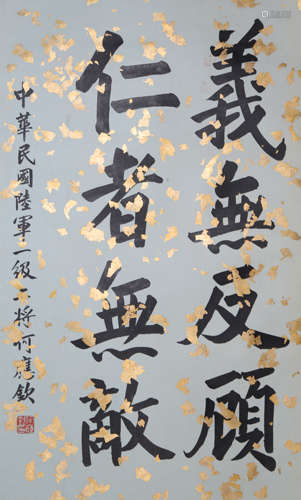 義無反顧
仁者無敵
中華民國陸軍一級上將何應欽